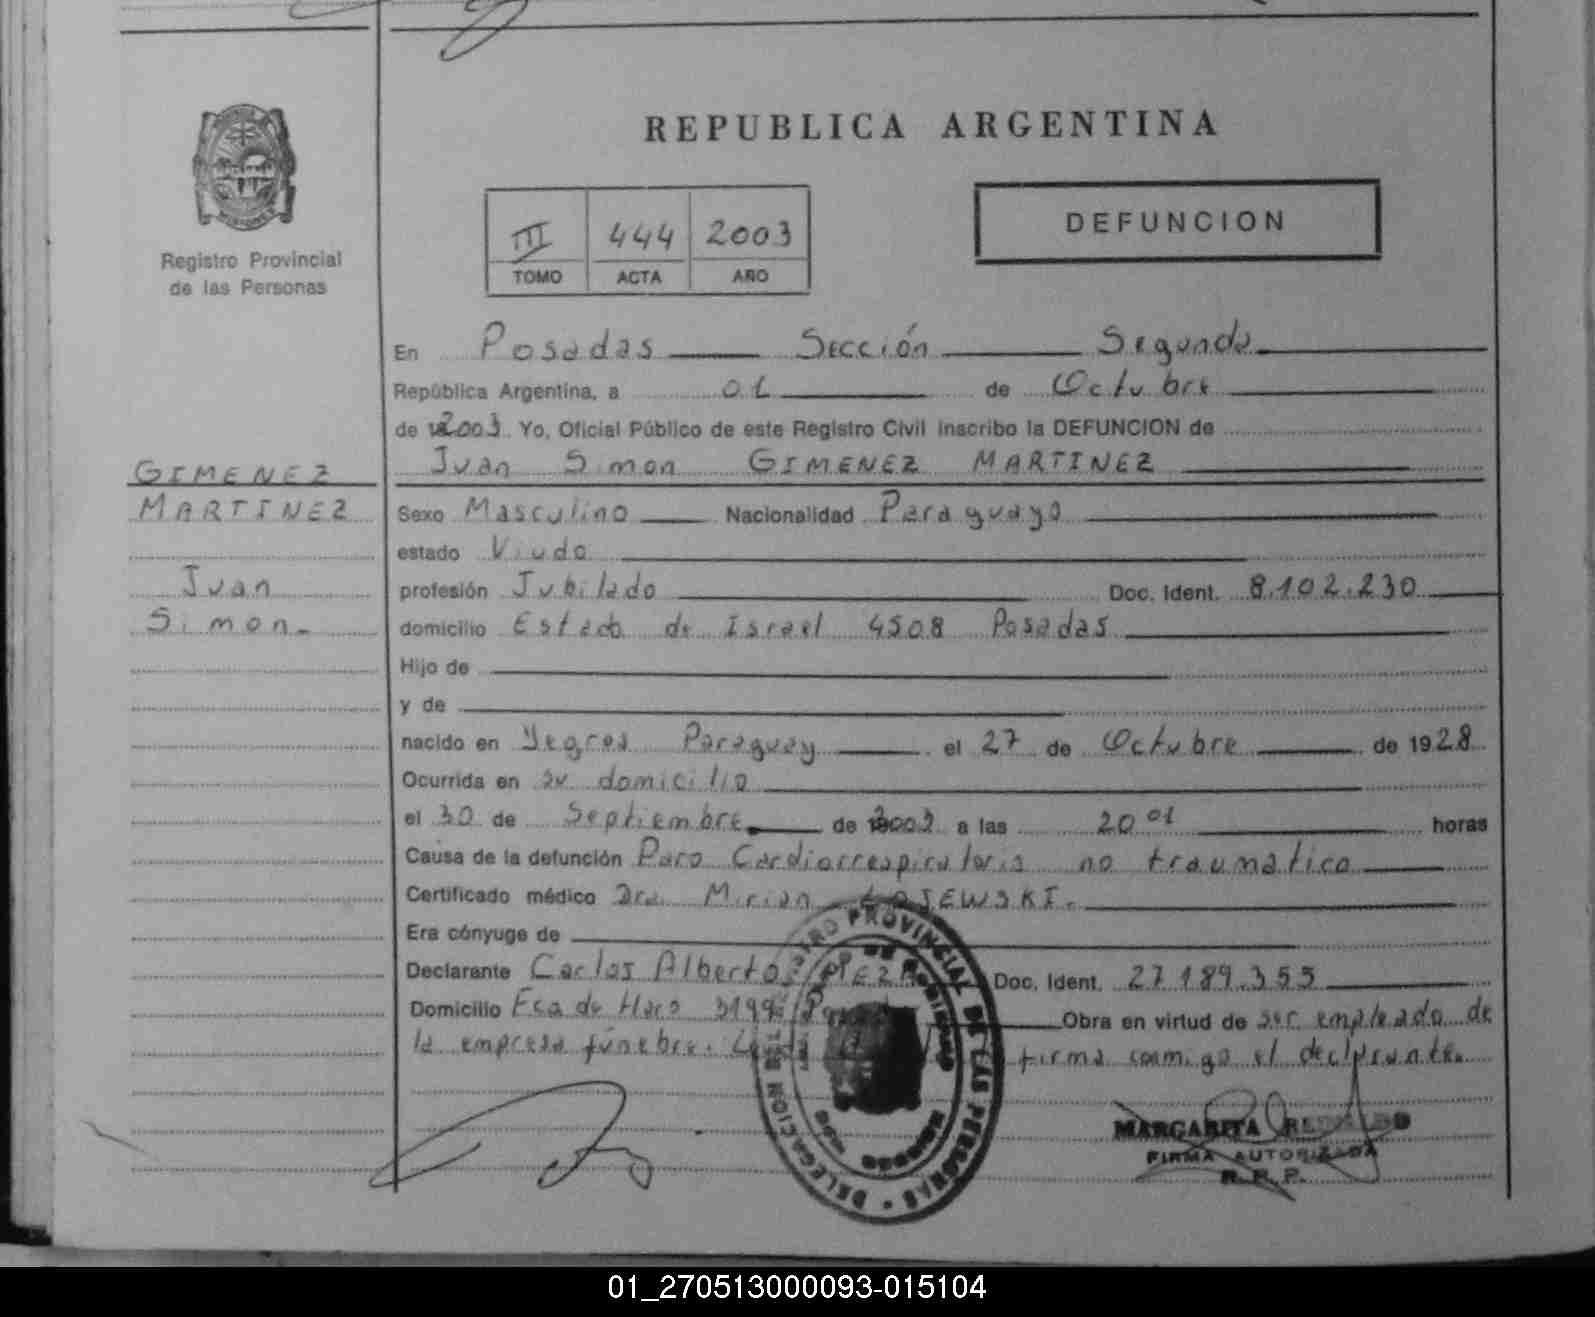 REPUBLICA ARGENTINA
Registro Provincial
de las Personas
III 444 2003
TOMO ACTA AÑO
DEFUNCION
En Posadas Sección Segunda
República Argentina, a 01 de Octubre
de 2003 Yo, Oficial Público de este Registro Civil inscribo la DEFUNCION de
Juan Simon GIMENEZ MARTINEZ
GIMENEZ
MARTINEZ
Juan
Simon.
Sexo Masculino Nacionalidad Paraguayo
estado Viudo
profesión Jubilado Doc. Ident. 8.102.230
domicilio Estado de Israel 4508 Posadas
Hijo de
y de
nacido en Yegros Paraguay el 27 de Octubre de 1928
Ocurrida en su domicilio
el 30 de Septiembre de 2003 a las 20 01 horas
Causa de la defunción Paro Cardiorrespiratorio no traumatico
Certificado médico Dra. Mirian
Era cónyuge de
Declarante Carlos Alberto Doc. Ident. 27.189.355
Domicilio Obra en virtud de ser empleado de
la empresa fúnebre. firma conmigo el declarante.
REGISTRO PROVINCIAL DE LAS PERSONAS
DELEGACION
MARGARITA
FIRMA AUTORIZADA
R. P. P.
01_270513000093-015104